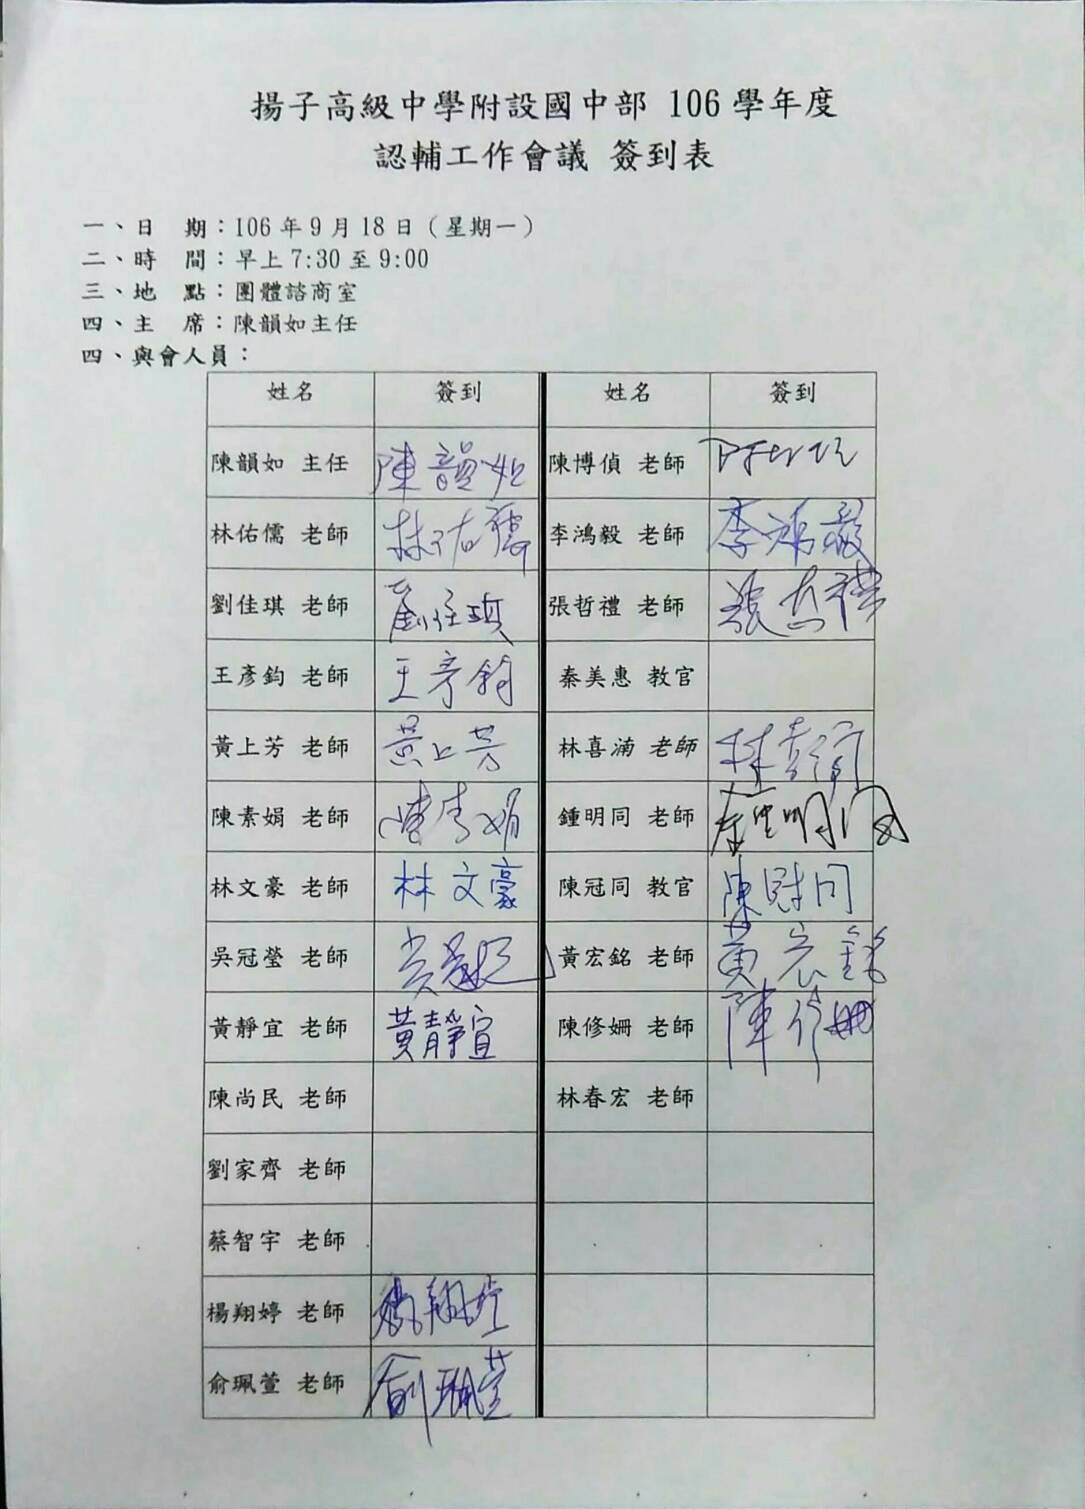 揚子高級中學附設國中部 106 學年度
認輔工作會議 簽到表
一、日 期：106 年 9 月 18 日（星期一）
二、時 間：早上 7:30 至 9:00
三、地 點：團體諮商室
四、主 席：陳韻如主任
四、與會人員：
姓名 簽到 姓名 簽到
陳韻如 主任 陳韻如 陳博偵 老師
林佑儒 老師 林佑儒 李鴻毅 老師 李鴻毅
劉佳琪 老師 劉佳琪 張哲禮 老師 張哲禮
王彥鈞 老師 王彥鈞 秦美惠 教官
黃上芳 老師 黃上芳 林喜滿 老師 林喜滿
陳素娟 老師 陳素娟 鍾明同 老師
林文豪 老師 林文豪 陳冠同 教官 陳冠同
吳冠瑩 老師 黃宏銘 老師 黃宏銘
黃靜宜 老師 黃靜宜 陳修姍 老師 陳修姍
陳尚民 老師 林春宏 老師
劉家齊 老師
蔡智宇 老師
楊翔婷 老師 楊翔婷
俞珮萱 老師 俞珮萱